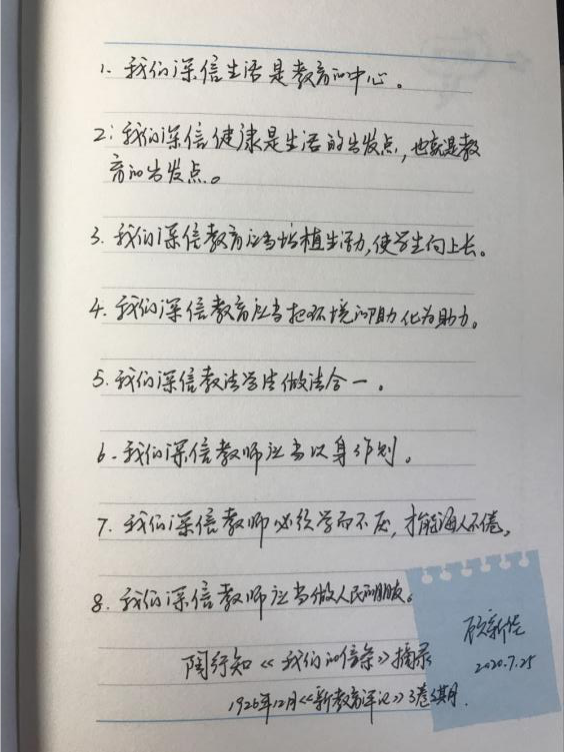 1. 我们深信生活是教育的中心。
2. 我们深信健康是生活的出发点，也就是教
育的出发点。
3. 我们深信教育应当培植生活力，使学生向上长。
4. 我们深信教育应当把环境的阻力化为助力。
5. 我们深信教法学法做法合一。
6. 我们深信教师应当以身作则。
7. 我们深信教师必须学而不厌，才能诲人不倦。
8. 我们深信教师应当做人民的朋友。
陶行知《我们的信条》摘录
1926年12月《新教育评论》3卷期
顾新佳
2020.7.25